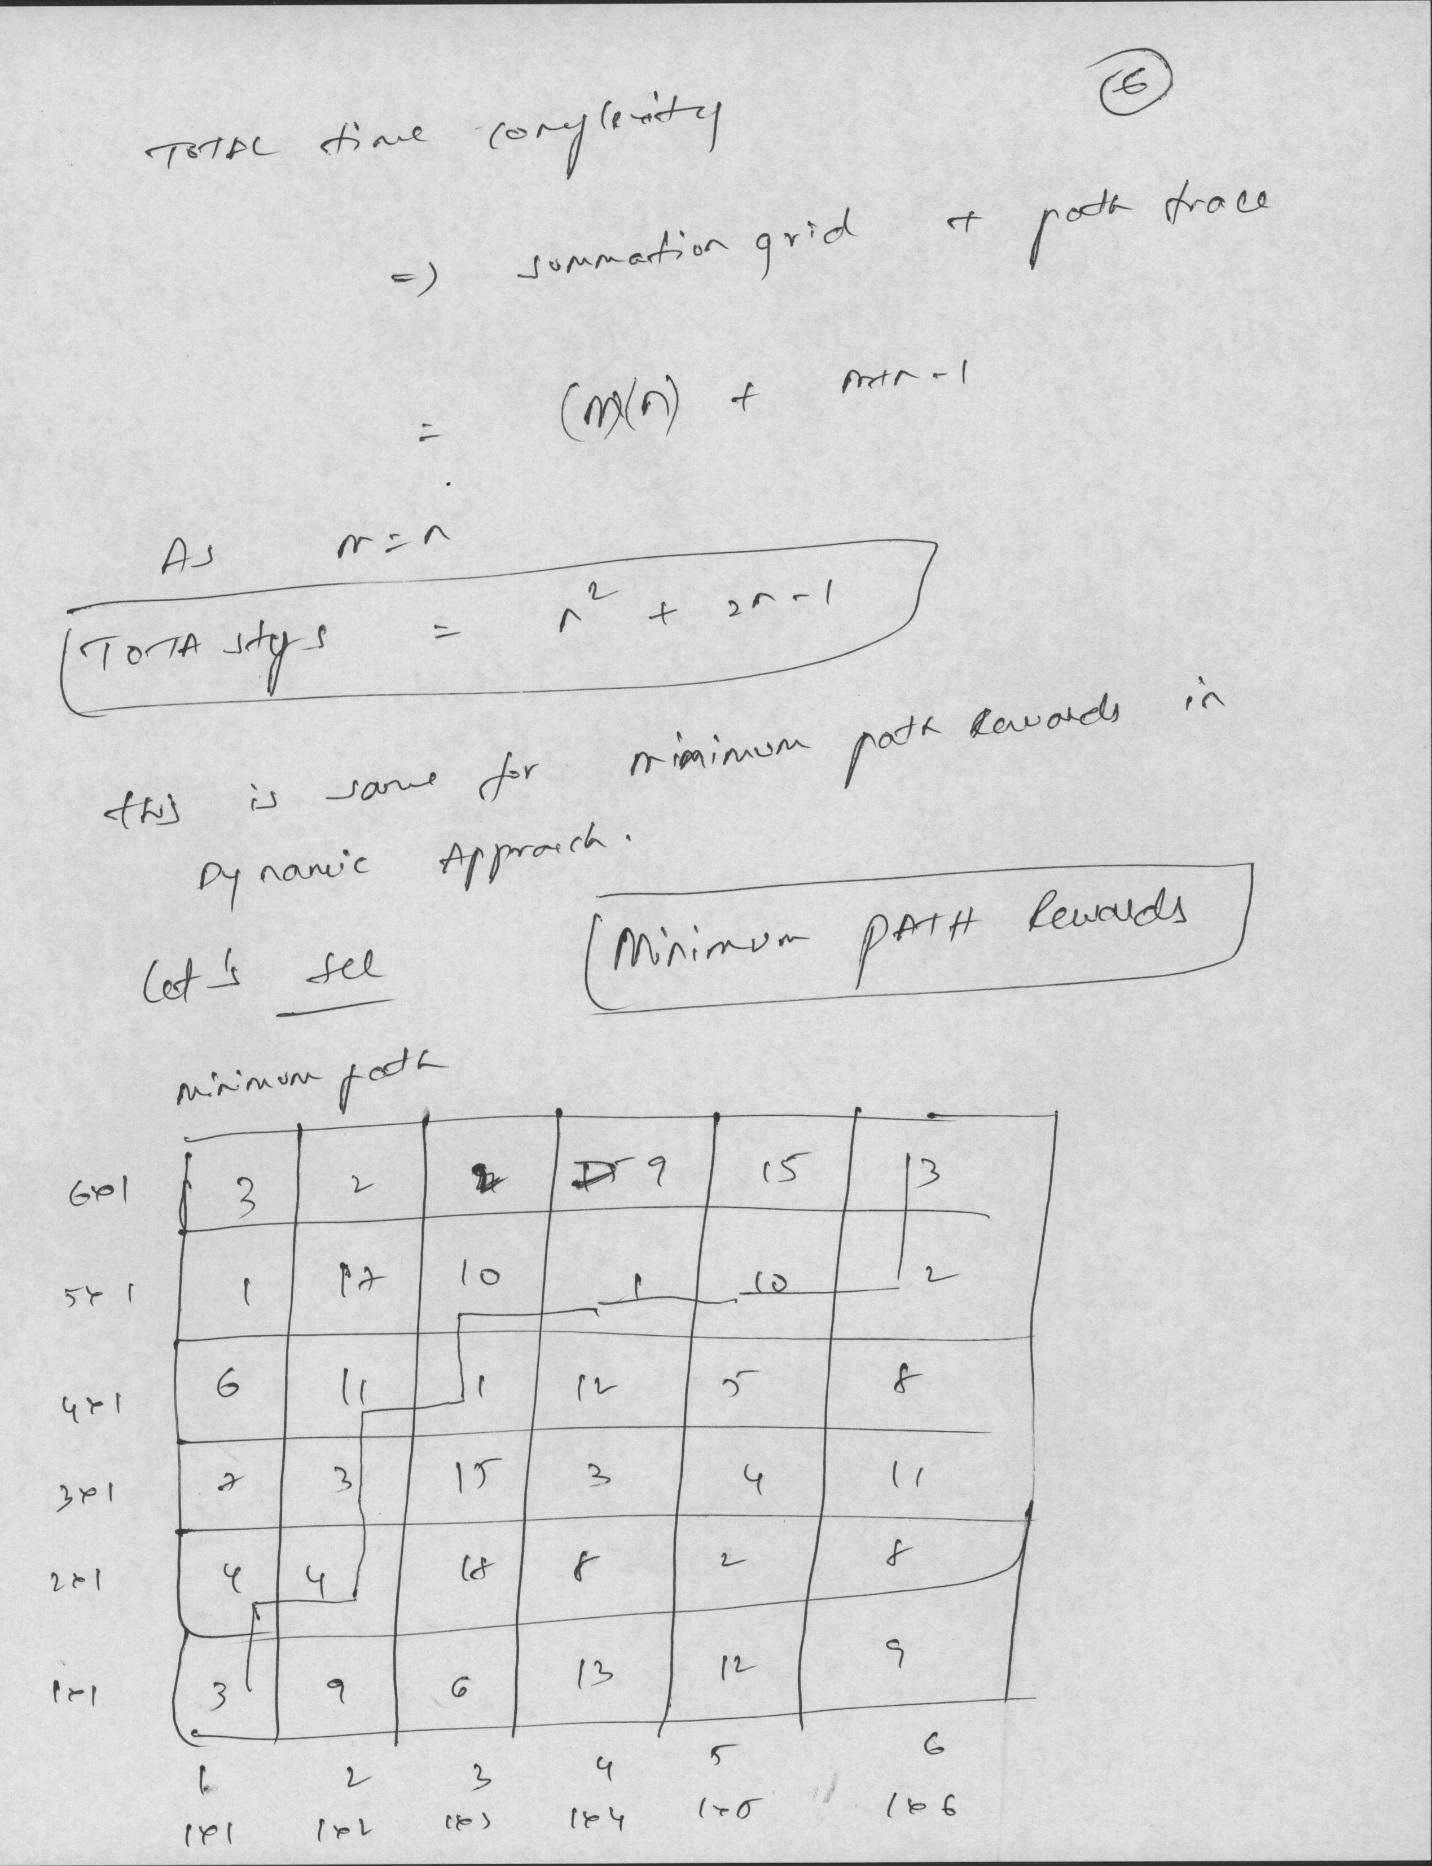 6
TOTAL time complexity
=> summation grid + path trace
= (m)(n) + m+n-1
As m=n
TOTA steps = n² + 2n-1
this is same for minimum path Rewards in
Dynamic Approach.
Let's see Minimum PATH Rewards
minimum path
6x1 3 2 9 15 13
5x1 1 17 10 1 10 2
4x1 6 11 1 12 5 8
3x1 7 3 15 3 4 11
2x1 4 4 18 8 2 8
1x1 3 9 6 13 12 9
1 2 3 4 5 6
1x1 1x2 1x3 1x4 1x5 1x6